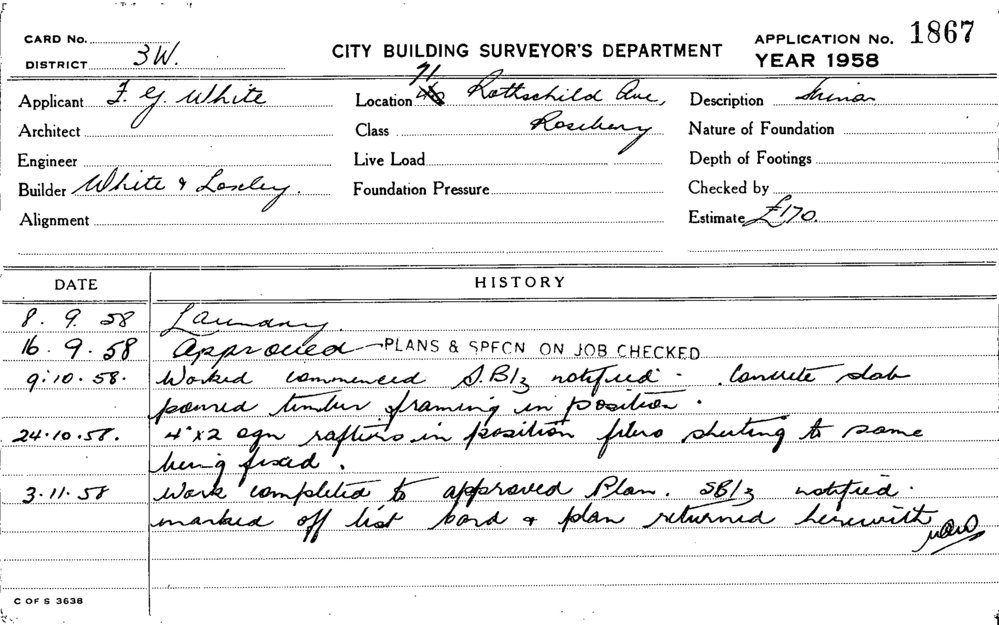 CARD No.
DISTRICT 3W.
CITY BUILDING SURVEYOR'S DEPARTMENT
APPLICATION No. 1867
YEAR 1958
Applicant F. G. White
Location 71 Rothschild Ave,
Description Minor
Architect
Class Rosebery
Nature of Foundation
Engineer
Live Load
Depth of Footings
Builder White & Losley.
Foundation Pressure
Checked by
Alignment
Estimate £170.
DATE HISTORY
8. 9. 58 Laundry.
16. 9. 58 Approved - PLANS & SPFCN ON JOB CHECKED
9.10.58. Worked commenced S.B/3 notified. Concrete slab
poured timber framing in position.
24.10.58. 4"x2 ogn rafters in position fibro sheeting to same
being fixed.
3.11.58 Work completed to approved Plan. SB/3 notified.
marked off list card & plan returned herewith
C OF S 3638